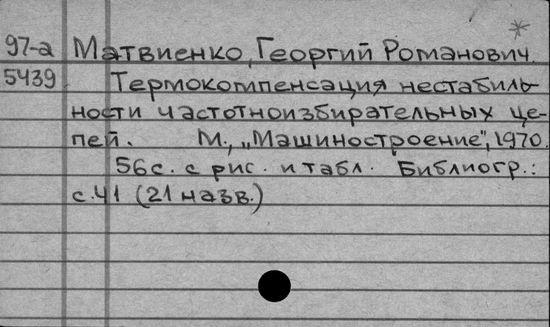 97-а Матвиенко, Георгий Романович.
5439 Термокомпенсация нестабиль-
ности частотноизбирательных це-
пей. М., „Машиностроение", 1970.
56 с. с рис. и табл. Библиогр.:
с. 41 (21 назв.)